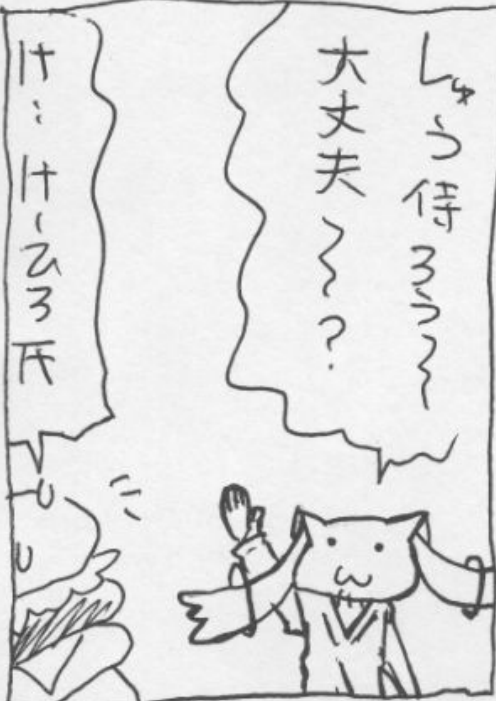 しゅう侍ろう〜
大丈夫〜〜?
け…けーひろ氏